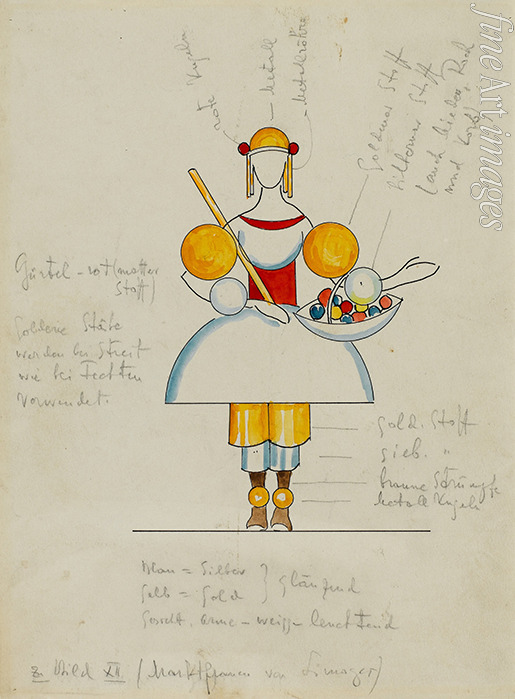 rote Kugeln
Metall
Metallröhre
Goldener Stoff
Silberner Stoff
und Korb)
Gürtel - rot (matter
Stoff)
Goldene Stäbe
werden bei Streit
wie bei Fechten
verwendet.
Gold. Stoff
Silb. "
braune Strümpfe
Metall Kugeln
Blau = Silber
Gelb = Gold
} Glänzend
Gesicht, Arme - weiss - leuchtend
Zu Bild XII (Marktfrauen von Limoges)
fine Art images